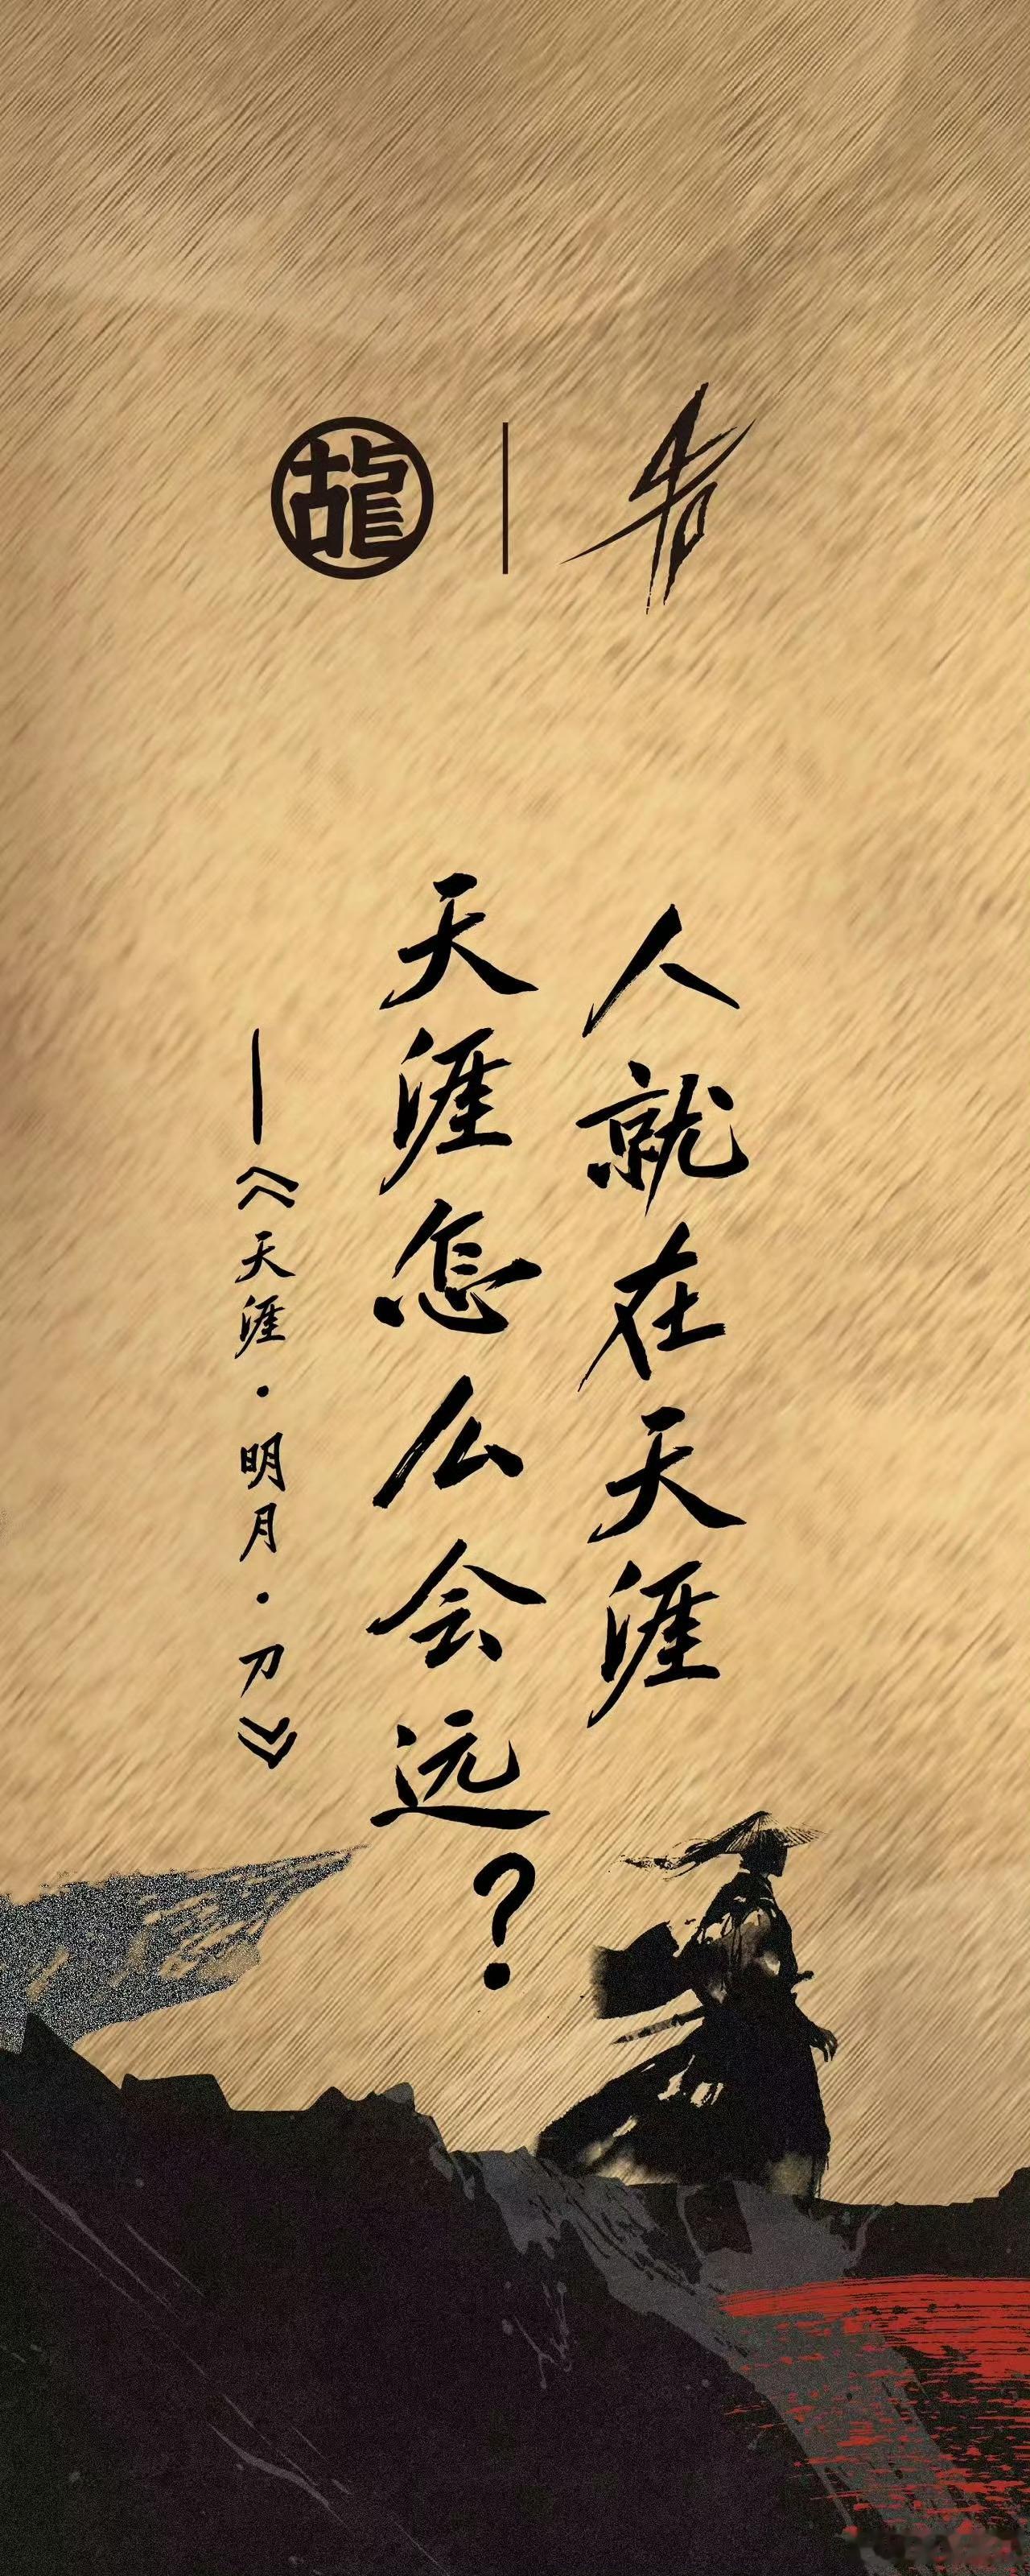 人就在天涯
天涯怎么会远？
—《天涯·明月·刀》